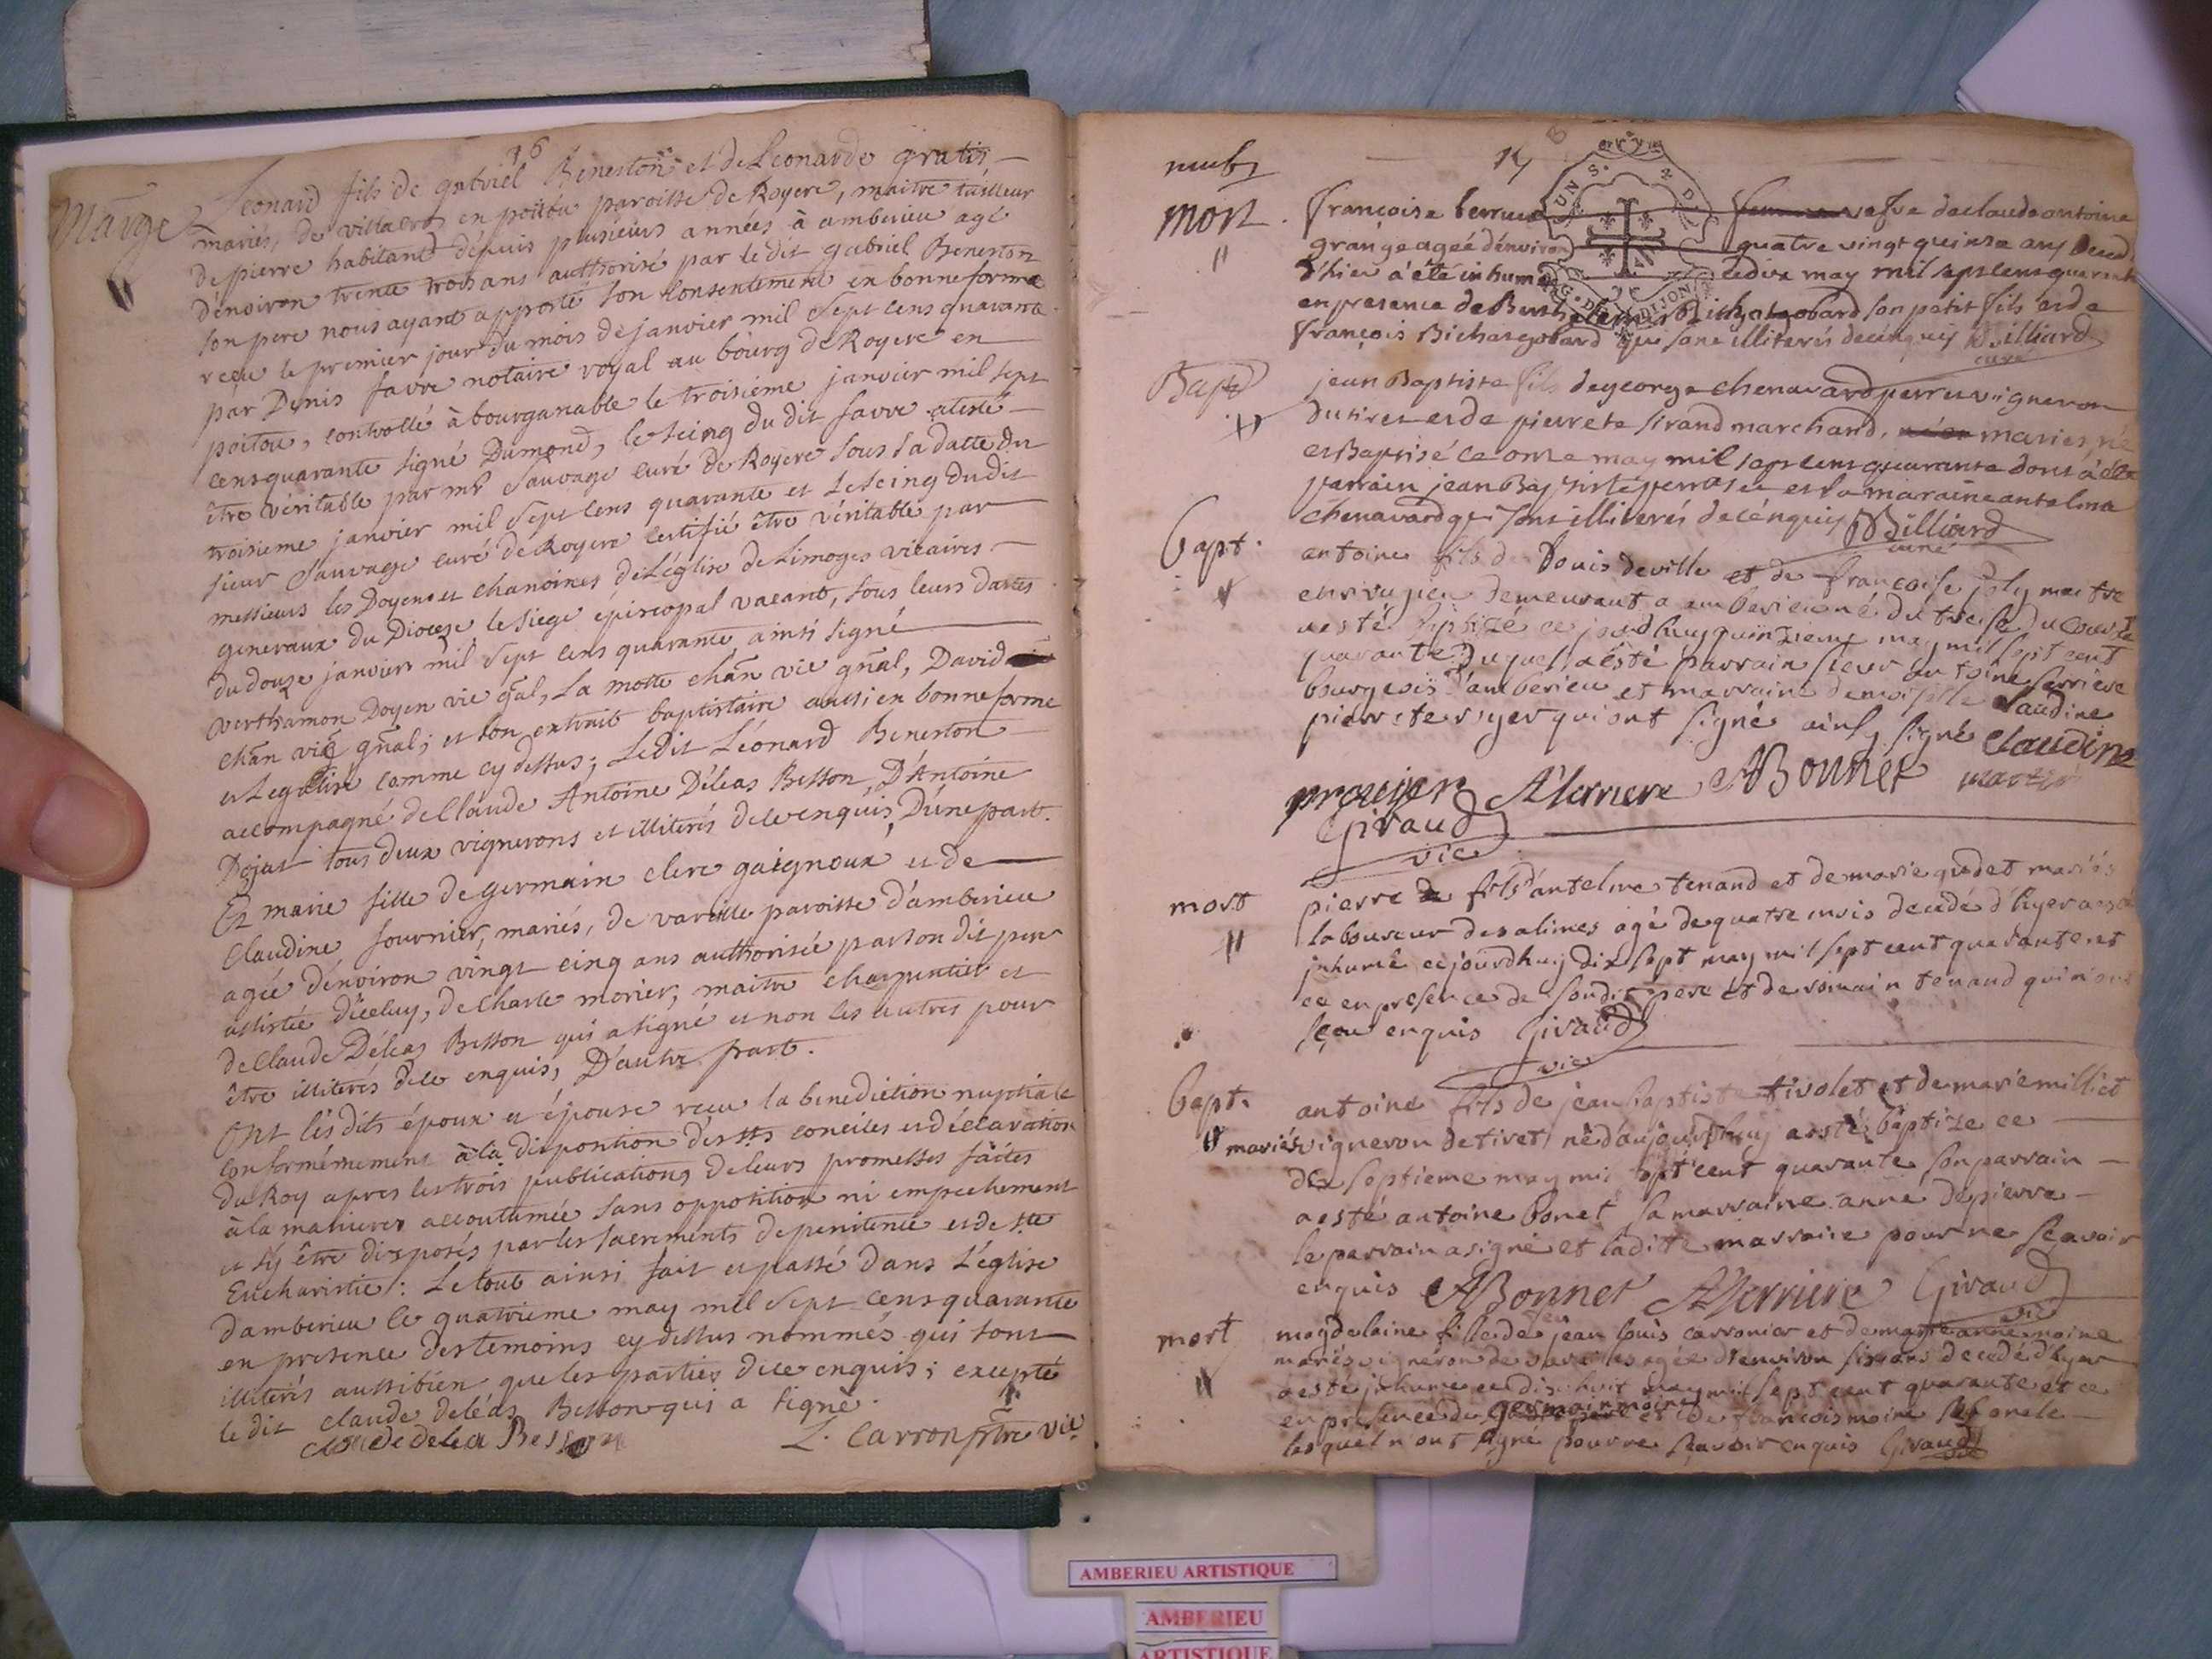 16
Mariage
Leonard fils de gabriel Beneston et de Leonarde gratis
mariés, de villaero en poitou paroisse de Royere, maitre tailleur
de pierre habitant depuis plusieurs années à amberieu agé
d'environ trente trois ans authorisé par ledit gabriel Beneston
son pere nous ayant apporté son consentement en bonne forme
reçu le premier jour du mois de janvier mil sept cens quarante
par Denis favre notaire royal au bourg de Royere en
poitou, controllé à bourganable le troisième janvier mil sept
cens quarante signé Dumond, le seing du dit favre atesté
être véritable par mr Sauvage curé de Royere sous la datte du
troisieme janvier mil sept cens quarante et le seing du dit
sieur Sauvage curé de Royere certifié être véritable par
messieurs les Doyens et chanoines de L'église de Limoges vicaires
generaux du Diocese le siege épiscopal vacant, sous leurs dattes
du douze janvier mil sept cens quarante ainsi signé
verthamon Doyen vic gñal, La motte chañ vic gñal, David
chañ vic gñal; et son extrait baptistaire aussi en bonne forme
et legalisé comme cy dessus; Ledit Léonard Beneston
accompagné de Claude Antoine Déleas Besson D'Antoine
Dojat tous deux vignerons et illiterés de ce enquis, D'une part.
Et marie fille de germain clerc gaignoux et de
Claudine fournier, mariés, de vareille paroisse d'amberieu
agée d'environ vingt cinq ans authorisée par son dit pere
assistée d'iceluy, de Charle morier, maitre charpentier et
de Claude Déleas Besson qui a signé et non les autres pour
être illiterés de ce enquis, D'autre part.
Ont lesdits époux et épouse reçu la benediction nuptiale
conformément à la disposition des sts conciles et déclaration
du Roy apres les trois publications de leurs promesses faites
à la maniere accoutumée sans opposition ni empechement
et s'y être disposés par les sacrements de penitence et de ste
Eucharistie: Le tout ainsi fait et passé dans L'église
d'amberieu le quatrieme may mil sept cens quarante
en presence des temoins cy dessus nommés qui sont
illiterés aussi bien que les parties de ce enquis; excepté
le dit Claude deléas Besson qui a signé.
Claude delea Besson L. Carron prtre vic
17
mort
françoise femme vefve de claude antoine
grange ageé d'environ quatre vingt quinze ans deced
d'hier a été inhumé ce dix may mil sept cens quarante
en presence de Bichatgobard son petit fils et de
françois Bichatgobard qui sont illiterés de ce enquis Billiard
curé
Bapt
jean Baptiste fils de george chenavard perru vigneron
du tiret et de pierrete sirand marchand, mariés, né
et Baptisé ce onze may mil sept cens quarante dont a été
parrain jean Baptiste et la maraine anteline
chenavard qui sont illiterés de ce enquis Billiard
curé
bapt.
antoine fils de Louis deville et de françoise joly maitre
demeurant a amberieu né du treise du courant
a esté baptizé ce jourd'huy quinzieme may mil sept cent
quarante duquel a esté parrain sieur antoine serriere
bourgeois d'amberieu et marraine demoiselle claudine
pierrete royer qui ont signé ainsy signé Claudine
A Serriere ABonnet
Giraud
vic
mort
pierre fils d'antelme tenand et de marie gudet mariés
laboureur des alimes agé de quatre mois decedé d'hyer a esté
inhumé ce jourdhuy dix sept may mil sept cent quarante et
ce en presence de son dit pere et de romain tenand qui n'ont
sçeu enquis Giraud
vic
bapt.
antoine fils de jean baptiste tivolet et de marie milliet
mariés vigneron de tiret, né d'aujourd'huy a esté baptize ce
dix septieme may mil sept cent quarante son parrain
a esté antoine bonet sa marraine anne depierre
le parrain a signé et la dite marraine pour ne sçavoir
enquis ABonnet A Serriere Giraud
vic
mort
magdelaine fille de feu jean louis carronier et de marie anne moine
mariés vigneron de agée d'environ six ans decedé d'hyer
a esté inhumé ce dix huit may mil sept cent quarante et ce
en presence de germain moine et de françois moine son oncle
lesquel n'ont signé pour ne sçavoir enquis Giraud
AMBERIEU ARTISTIQUE
AMBERIEU
ARTISTIQUE